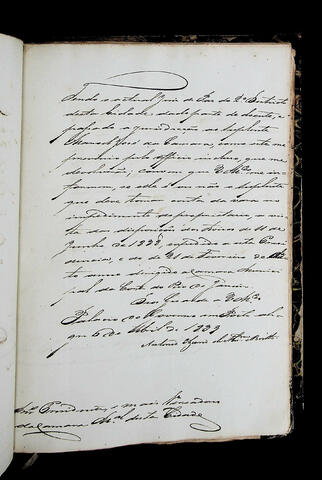 Tendo o actual Juiz de Paz do 2º Districto
desta Cidade, dado parte de doente, e
passado a jurisdicção ao Supplente
Manoel José da Camara, como este me
por um officio incluso, que me
devolverão; convem que VMces me in-
formem, se este é ou não o Supplente
que deve tomar conta da vara no
impedimento do proprietario, a vis-
ta das disposições do Aviso de 11 de
Junho de 1838, expedido a esta Presi-
dencia, e do de 21 de Fevereiro do
anno dirigido a Camara Munici-
pal da Corte do Rio de Janeiro.
Deos Guarde a VMces
Palacio do Governo em Porto Ale-
gre de Abril de 1839
Antonio
Snres Presidente, e mais Vereadores
da Camara Mal desta Cidade